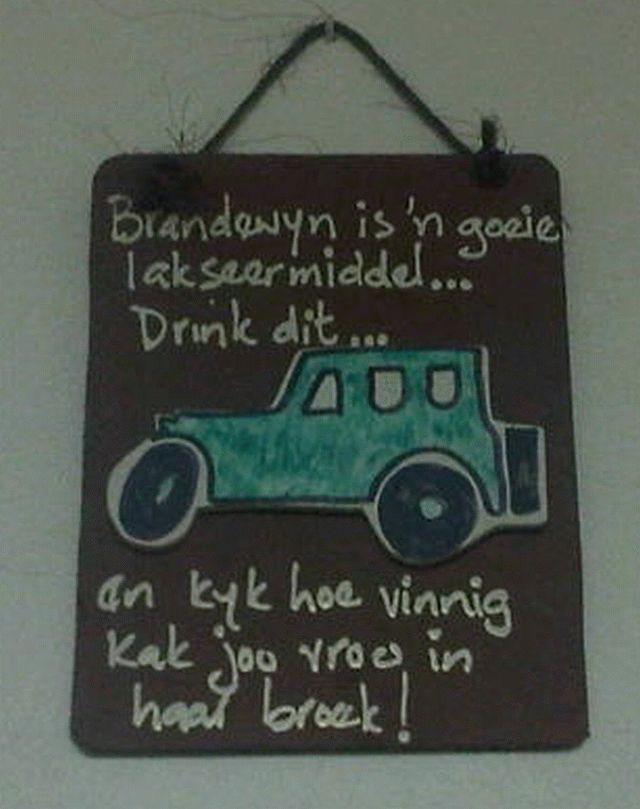 Brandewyn is 'n goeie
lakseermiddel...
Drink dit...
en kyk hoe vinnig
kak jou vrou in
haar broek!